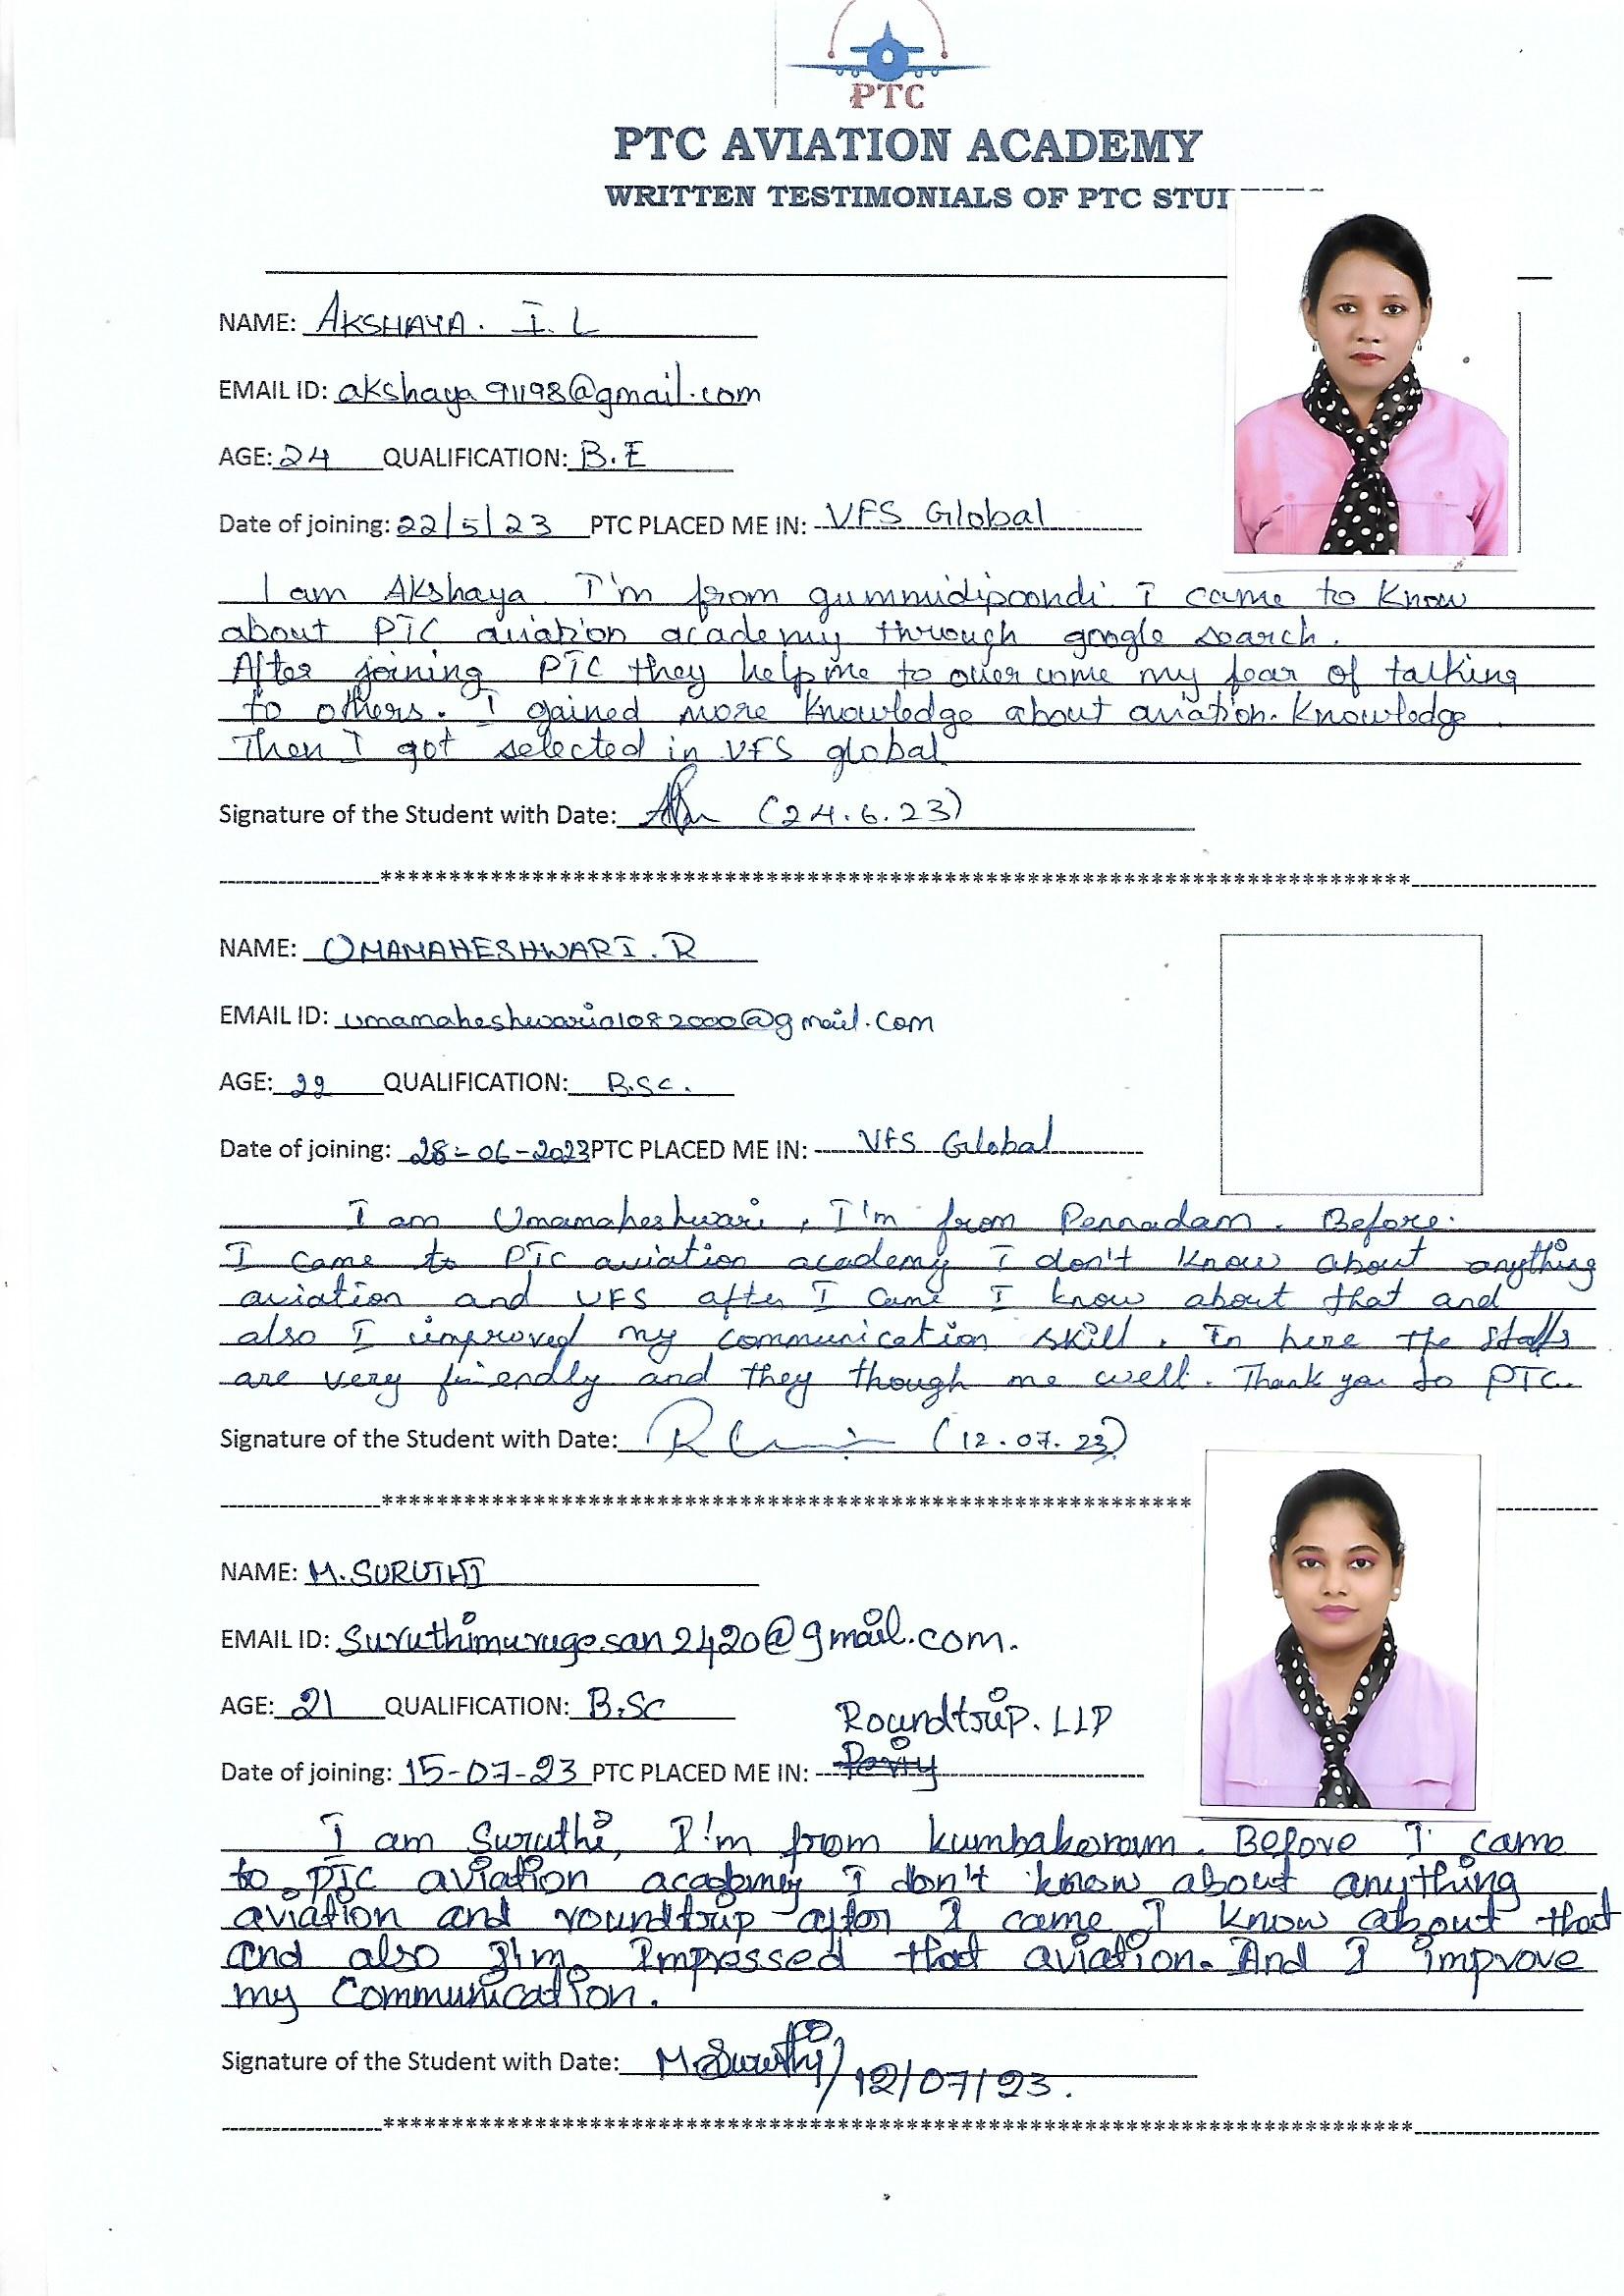 PTC
PTC AVIATION ACADEMY
WRITTEN TESTIMONIALS OF PTC STU
NAME: AKSHAYA. I. L
EMAIL ID: akshaya91198@gmail.com
AGE: 24 QUALIFICATION: B.E
Date of joining: 22/5/23 PTC PLACED ME IN: VFS Global
I am Akshaya. I'm from gummidipoondi. I came to know
about PTC aviation academy through google search.
After joining PTC they help me to overcome my fear of talking
to others. I gained more knowledge about aviation. Knowledge.
Then I got selected in VFS global
Signature of the Student with Date: (24.6.23)
********************************************************************************
NAME: UMAMAHESHWARI. R
EMAIL ID: @gmail.com
AGE: 22 QUALIFICATION: B.SC.
Date of joining: 28-06-2023 PTC PLACED ME IN: VFS Global
I am Umamaheshwari, I'm from Pennadam. Before.
I came to PTC aviation academy I don't know about anything
aviation and VFS after I came I know about that and
also I improved my communication skill. In here the staffs
are very friendly and they though me well. Thank you to PTC.
Signature of the Student with Date: (12.07.23)
**************************************************************
NAME: M. SURUTHI
EMAIL ID: Suruthimurugesan2420@gmail.com.
AGE: 21 QUALIFICATION: B.Sc
Roundtrip. LLP
Date of joining: 15-07-23 PTC PLACED ME IN:
I am Suruthi, I'm from kumbakonam. Before I came
to PTC aviation academy I don't know about anything
aviation and roundtrip after I came I know about that
and also I'm Impressed that aviation. And I improve
my Communication.
Signature of the Student with Date: M. Suruthi/12/07/23.
********************************************************************************